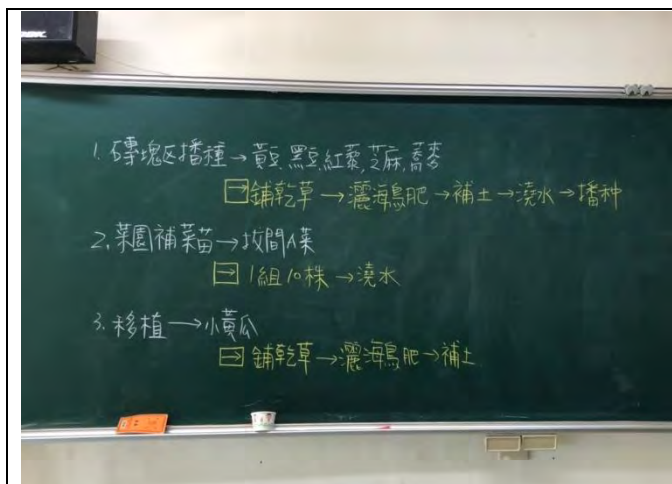 1. 磚塊区播種→黃豆,黑豆,紅藜,芝麻,蕎麥
→鋪乾草→灑海鳥肥→補土→澆水→播种
2. 菜園補菜苗→坟間A菜
→1組10株→澆水
3. 移植→小黃瓜
→鋪乾草→灑海鳥肥→補土